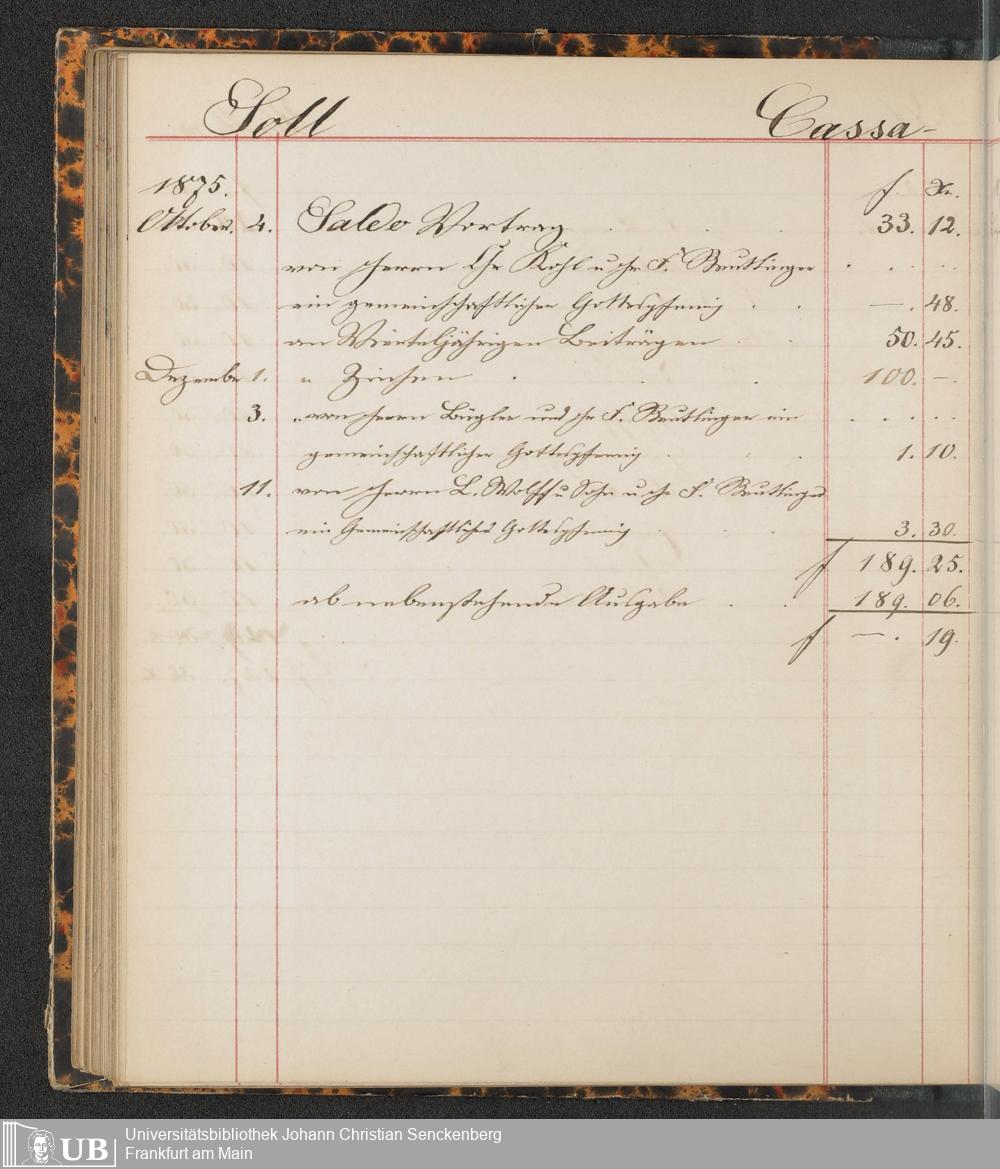 Soll Cassa-
1875. f. Xr.
Oktober. 4. Saldo Vortrag 33. 12.
von Herrn Chr Kohl u Hr F. Reutlinger
ein gemeinschaftlicher Gottespfennig —. 48.
an Vierteljährigen Beiträgen 50. 45.
Dezembe 1. " Zinsen 100. —.
3. " von Herrn Bügler und Hr F. Reutlinger ein
gemeinschaftlicher Gottespfennig 1. 10.
11. von Herrn L. Wolff u Sohn u Hr F. Reutlinger
ein Gemeinschaftliches Gottespfennig 3. 30.
f 189. 25.
ab nebenstehende Ausgabe 189. 06.
f —. 19.
UB Universitätsbibliothek Johann Christian Senckenberg
Frankfurt am Main